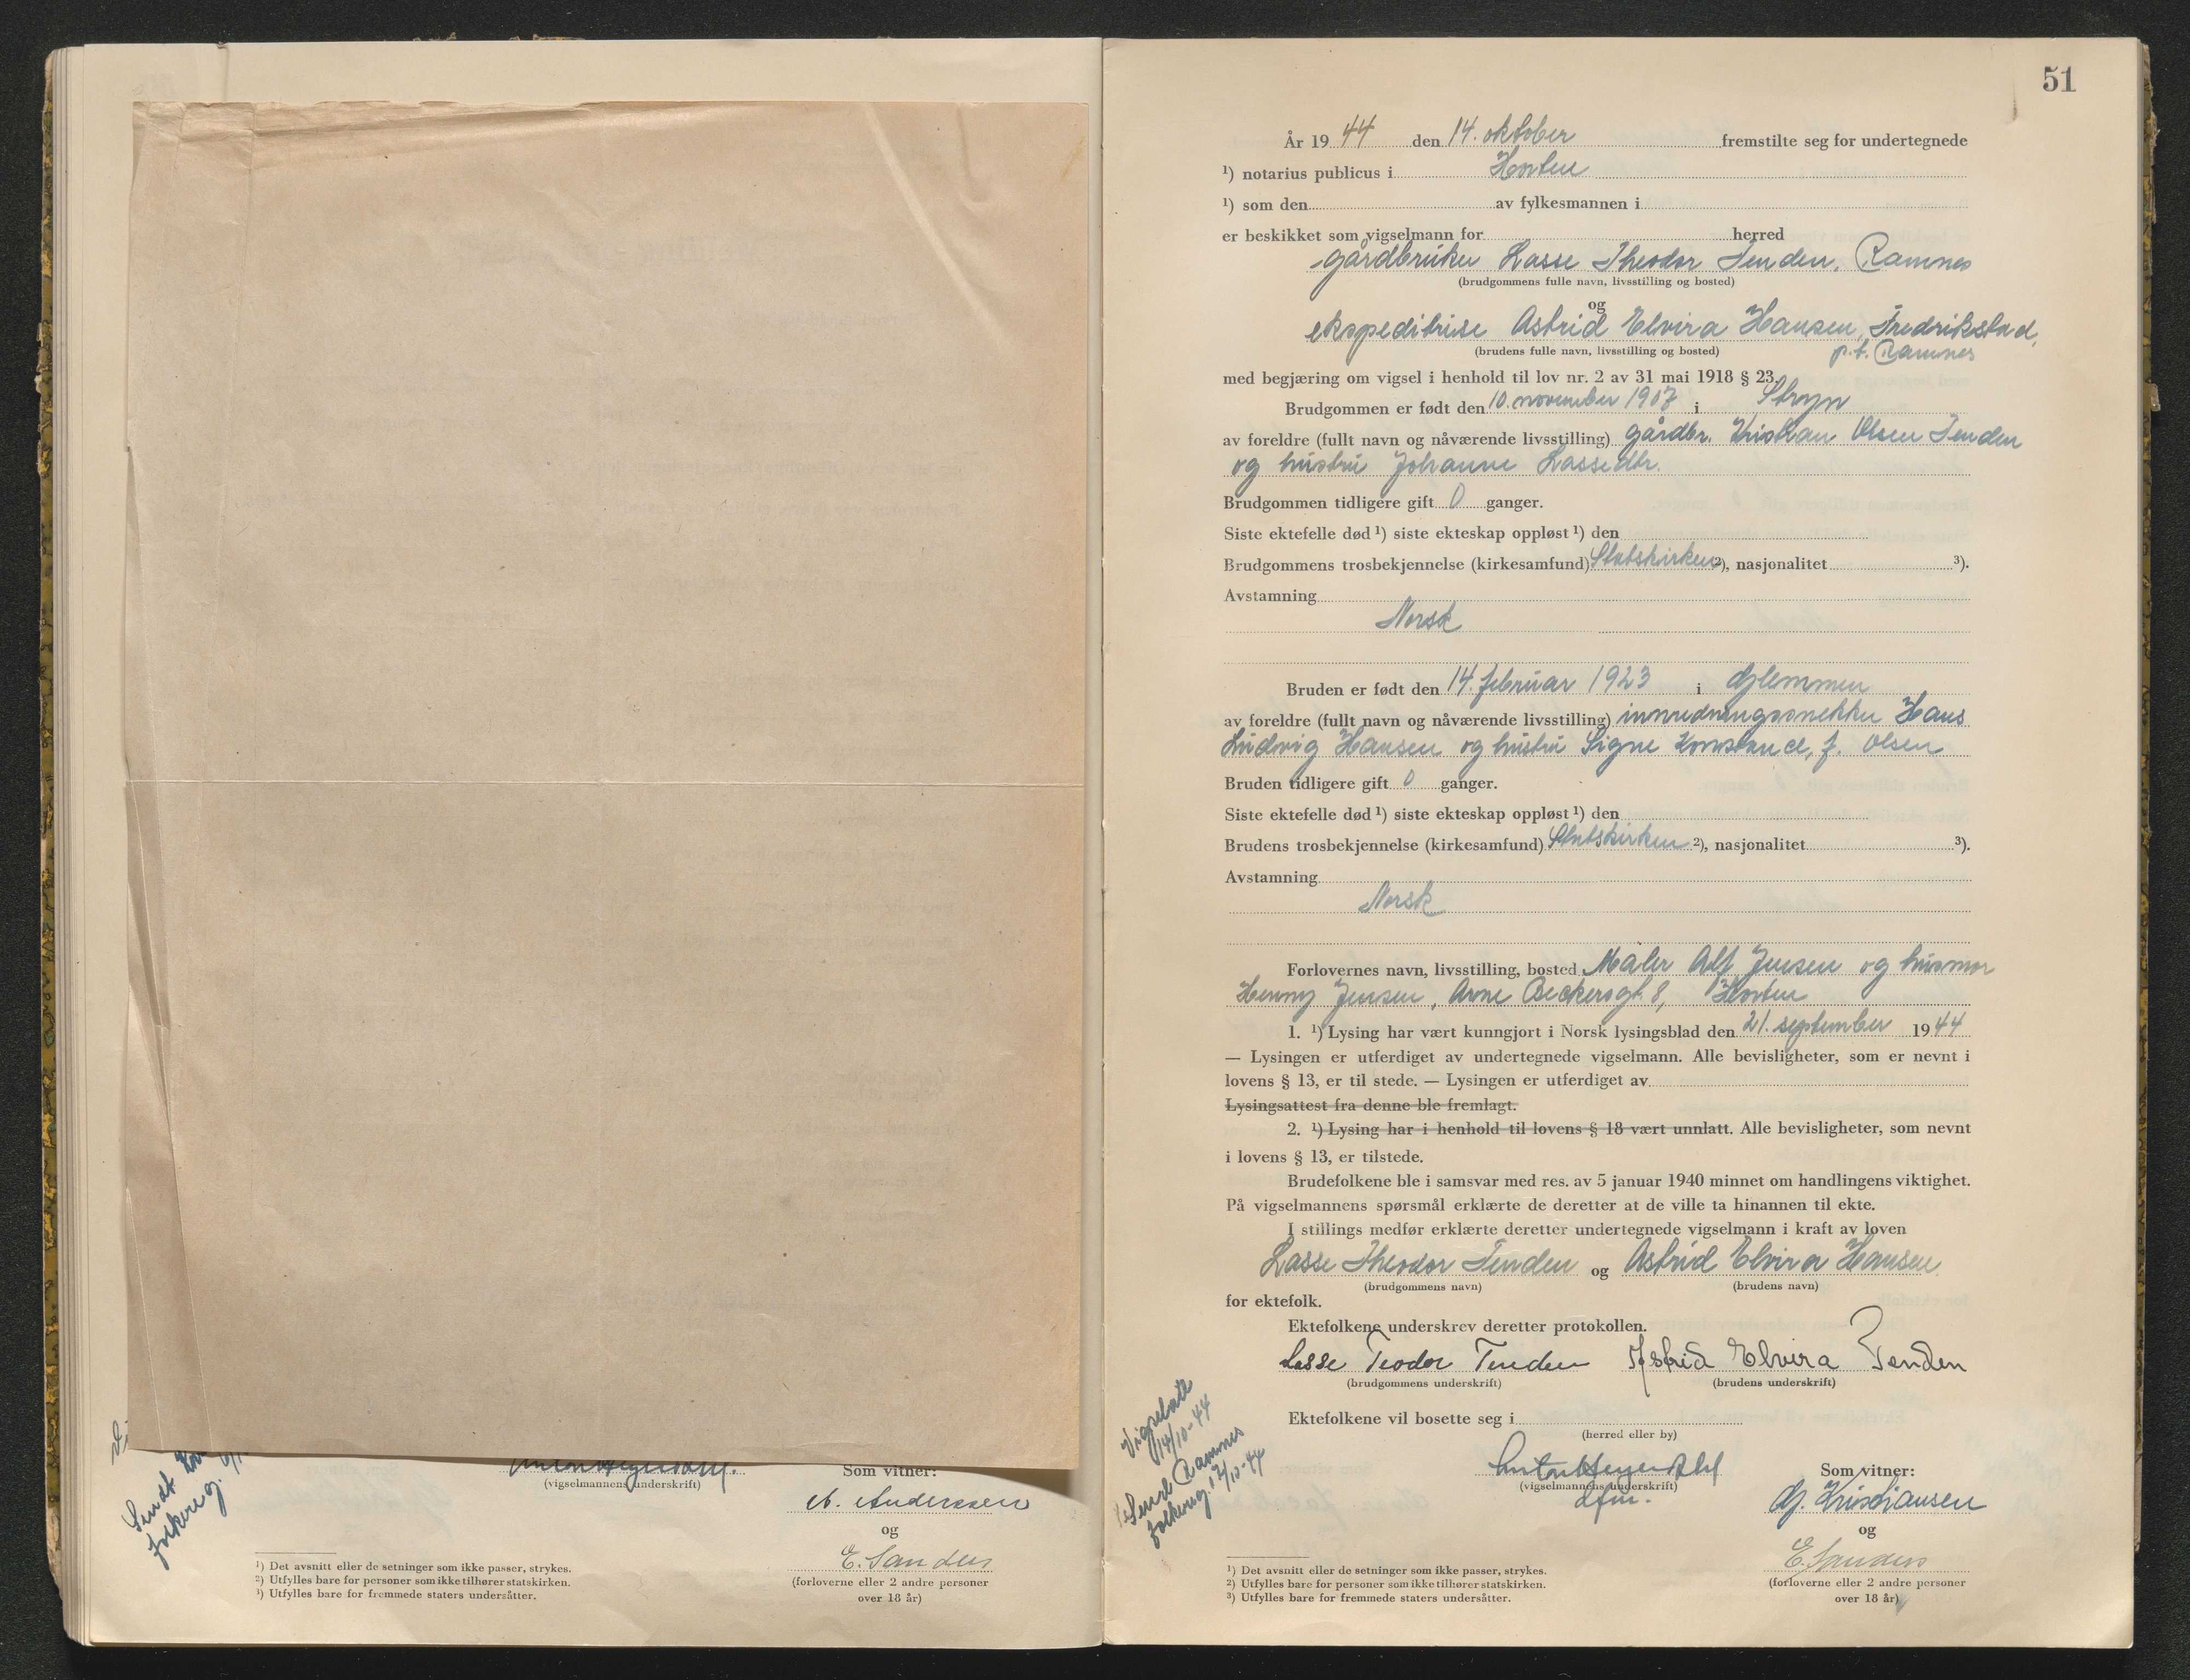 Sendt
folkereg.
(vigselmannens underskrift)
Som vitner:
A. Anderssen
og
E. Sanders
(forloverne eller 2 andre personer
over 18 år)
¹) Det avsnitt eller de setninger som ikke passer, strykes.
²) Utfylles bare for personer som ikke tilhører statskirken.
³) Utfylles bare for fremmede staters undersåtter.
51
År 19 44 den 14. oktober fremstilte seg for undertegnede
¹) notarius publicus i Horten
¹) som den av fylkesmannen i
er beskikket som vigselmann for herred
gårdbruker Lasse Theodor Tenden, Ramnes
(brudgommens fulle navn, livsstilling og bosted)
og
ekspeditrise Astrid Elvira Hansen, Fredrikstad,
(brudens fulle navn, livsstilling og bosted) p.t. Ramnes
med begjæring om vigsel i henhold til lov nr. 2 av 31 mai 1918 § 23.
Brudgommen er født den 10. november 1907 i Stryn
av foreldre (fullt navn og nåværende livsstilling) gårdbr. Kristian Olsen Tenden
og hustru Johanne Lassedtr.
Brudgommen tidligere gift 0 ganger.
Siste ektefelle død ¹) siste ekteskap oppløst ¹) den
Brudgommens trosbekjennelse (kirkesamfund) Statskirken ²), nasjonalitet ³).
Avstamning
Norsk
Bruden er født den 14. februar 1923 i Glemmen
av foreldre (fullt navn og nåværende livsstilling) innredningssnekker Hans
Ludvig Hansen og hustru Signe Konstance, f. Olsen
Bruden tidligere gift 0 ganger.
Siste ektefelle død ¹) siste ekteskap oppløst ¹) den
Brudens trosbekjennelse (kirkesamfund) Statskirken ²), nasjonalitet ³).
Avstamning
Norsk
Forlovernes navn, livsstilling, bosted Maler Alf Jensen og husmor
Henny Jensen, Arne Beckersgt. 8, Horten
1. ¹) Lysing har vært kunngjort i Norsk lysingsblad den 21. september 1944
— Lysingen er utferdiget av undertegnede vigselmann. Alle bevisligheter, som er nevnt i
lovens § 13, er til stede. — Lysingen er utferdiget av
Lysingsattest fra denne ble fremlagt.
2. ¹) Lysing har i henhold til lovens § 18 vært unnlatt. Alle bevisligheter, som nevnt
i lovens § 13, er tilstede.
Brudefolkene ble i samsvar med res. av 5 januar 1940 minnet om handlingens viktighet.
På vigselmannens spørsmål erklærte de deretter at de ville ta hinannen til ekte.
I stillings medfør erklærte deretter undertegnede vigselmann i kraft av loven
Lasse Theodor Tenden og Astrid Elvira Hansen
(brudgommens navn) (brudens navn)
for ektefolk.
Ektefolkene underskrev deretter protokollen.
Lasse Teodor Tenden Astrid Elvira Tenden
(brudgommens underskrift) (brudens underskrift)
Ektefolkene vil bosette seg i
(herred eller by)
Vigselatt
14/10-44
Send Ramnes
folkereg. 17/10-44
(vigselmannens underskrift)
Som vitner:
Gj. Kristiansen
og
E. Sanders
(forloverne eller 2 andre personer
over 18 år)
¹) Det avsnitt eller de setninger som ikke passer, strykes.
²) Utfylles bare for personer som ikke tilhører statskirken.
³) Utfylles bare for fremmede staters undersåtter.